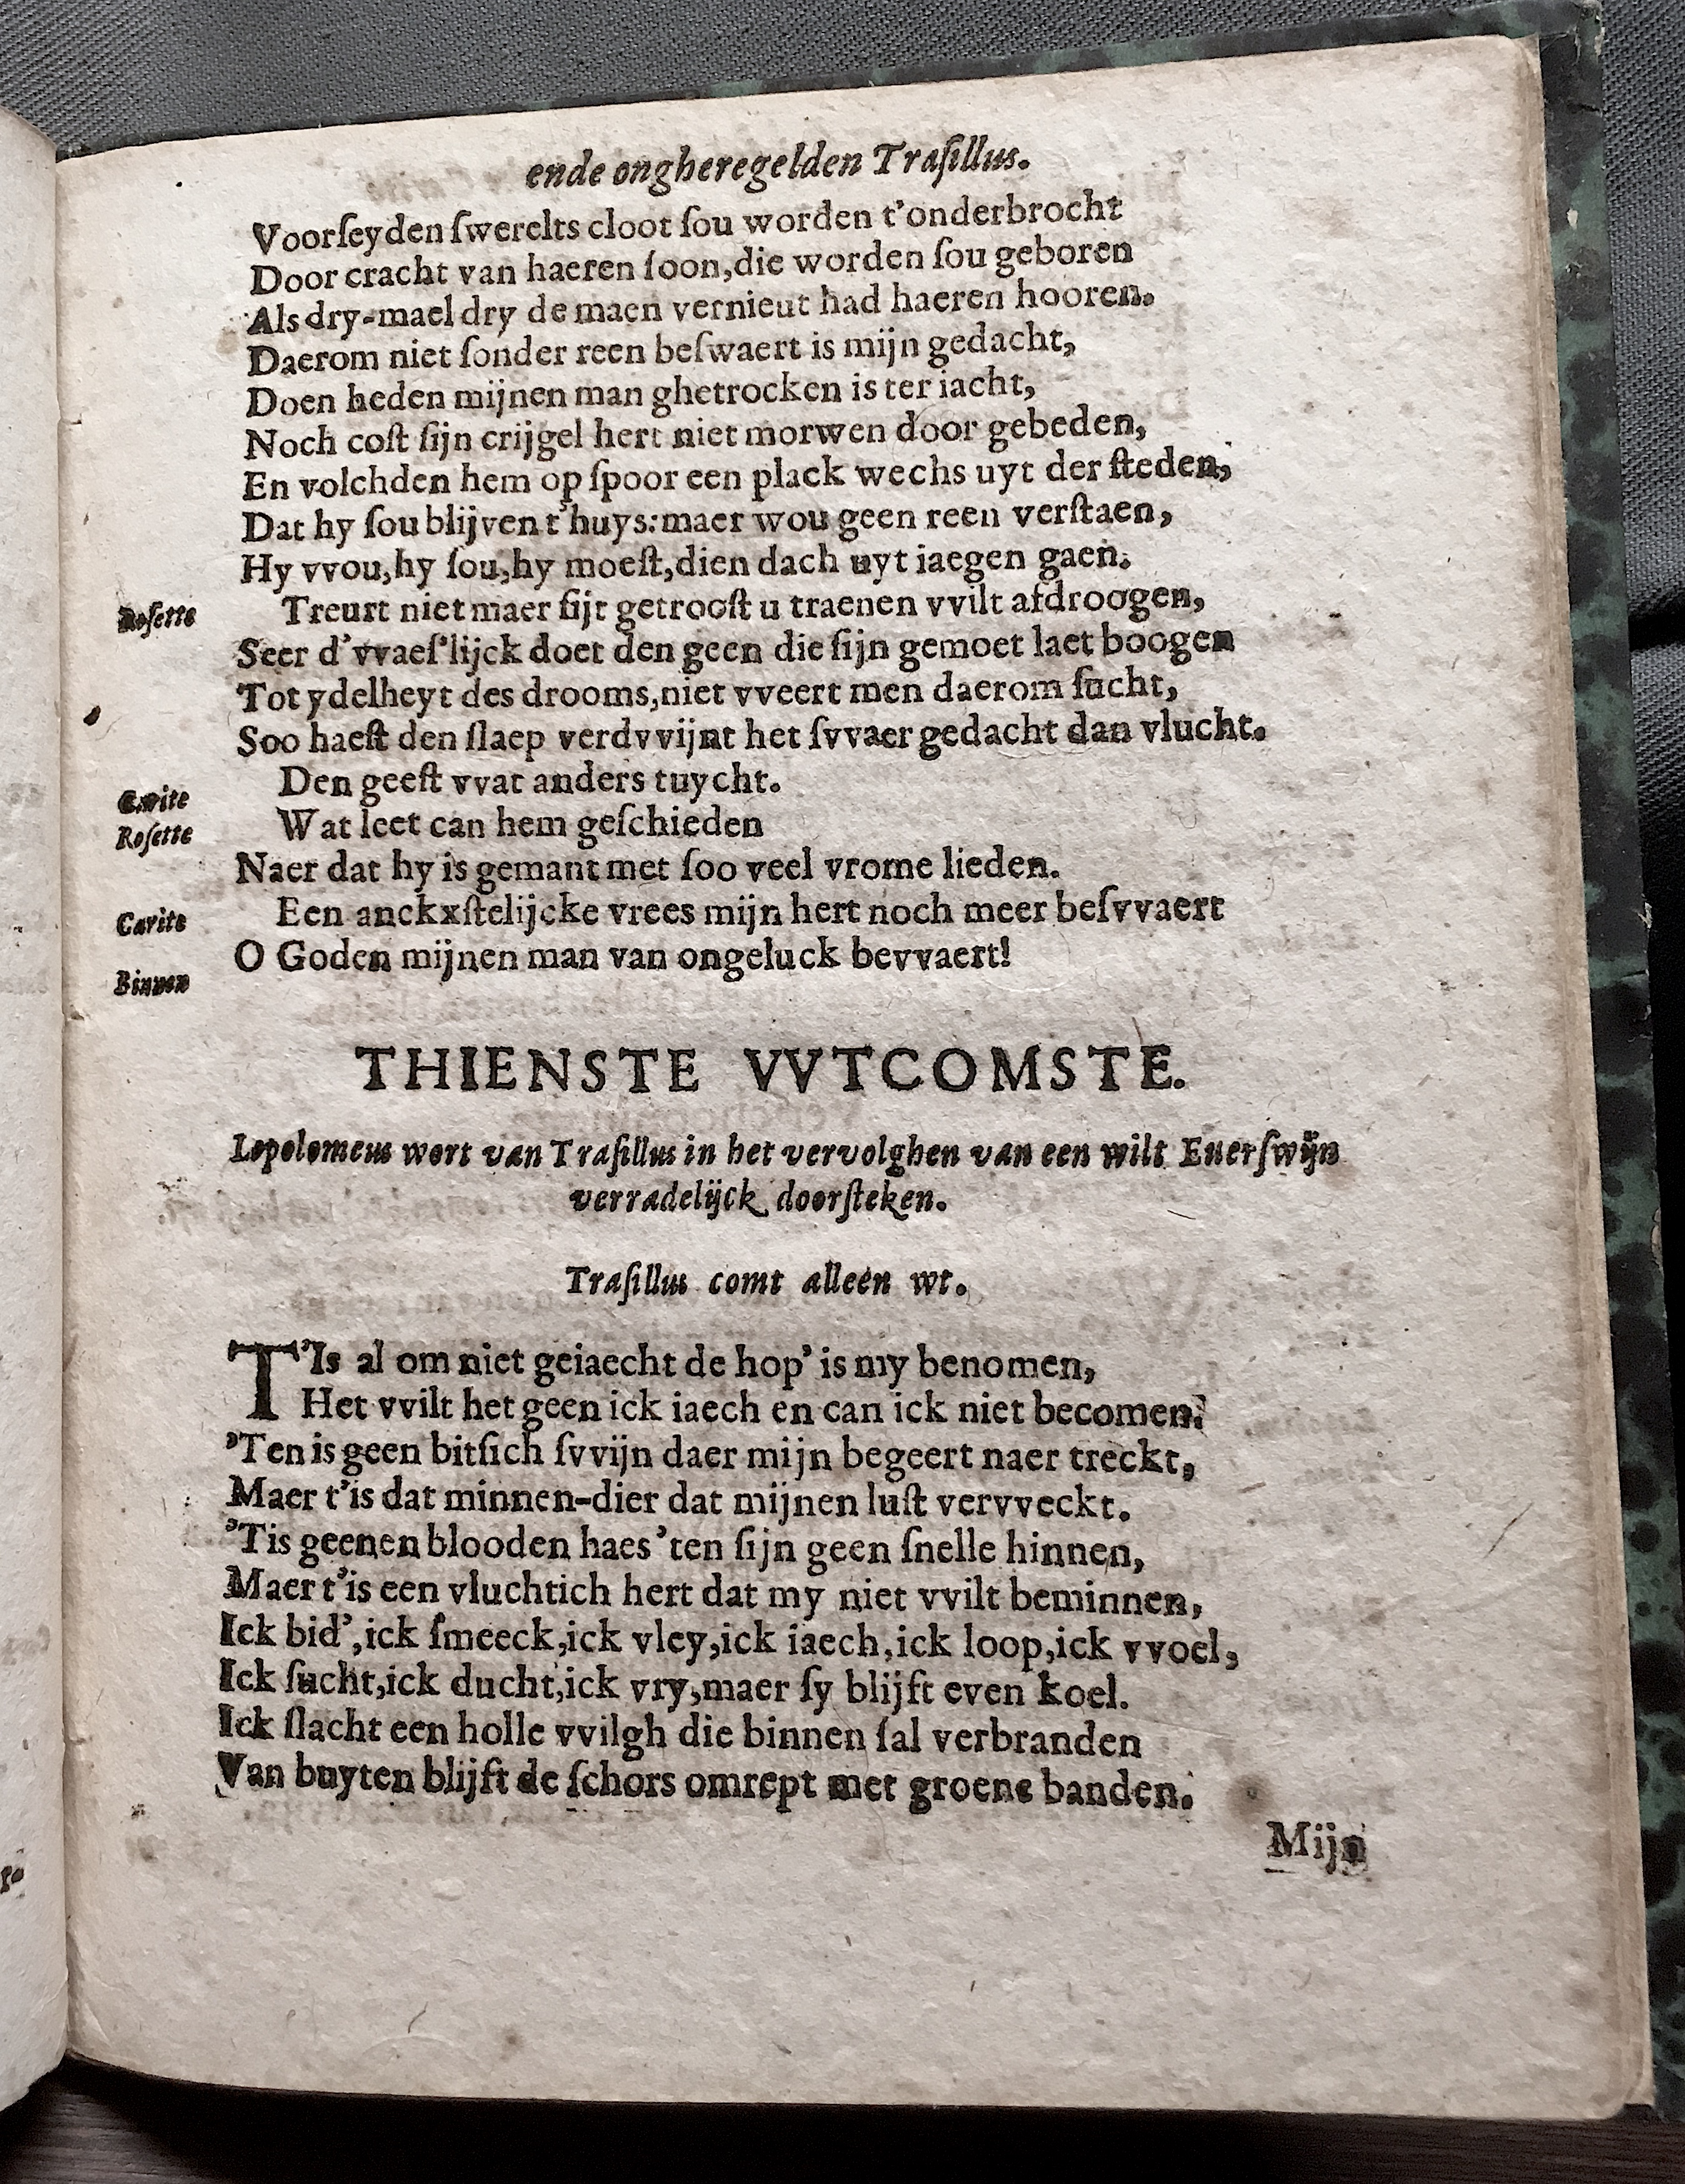 ende ongheregelden Traſillus.
Voorſeyden ſwerelts cloot ſou worden t'onderbrocht
Door cracht van haeren ſoon,die worden ſou geboren
Als dry-mael dry de maen vernieut had haeren hooren.
Daerom niet ſonder reen beſwaert is mijn gedacht,
Doen heden mijnen man ghetrocken is ter iacht,
Noch coſt ſijn crijgel hert niet morwen door gebeden,
En volchden hem op ſpoor een plack wechs uyt der ſteden,
Dat hy ſou blijven t'huys:maer wou geen reen verſtaen,
Hy vvou,hy ſou,hy moeſt,dien dach uyt iaegen gaen.
Roſette Treurt niet maer ſijt getrooſt u traenen vvilt afdroogen,
Seer d'vvaeſ'lijck doet den geen die ſijn gemoet laet boogen
Tot ydelheyt des drooms,niet vveert men daerom ſucht,
Soo haeſt den ſlaep verdvvijnt het ſvvaer gedacht dan vlucht.
Carite Den geeſt vvat anders tuycht.
Roſette Wat leet can hem geſchieden
Naer dat hy is gemant met ſoo veel vrome lieden.
Carite Een anckxſtelijcke vrees mijn hert noch meer beſvvaert
O Goden mijnen man van ongeluck bevvaert!
Binnen
THIENSTE VVTCOMSTE.
Lepolemeus wort van Traſillus in het vervolghen van een wilt Euerſwijn
verradelijck doorſteken.
Traſillus comt alleen wt.
T'Is al om niet geiaecht de hop' is my benomen,
Het vvilt het geen ick iaech en can ick niet becomen.
'Ten is geen bitſich ſvvijn daer mijn begeert naer treckt,
Maer t'is dat minnen-dier dat mijnen luſt vervveckt.
'Tis geenen blooden haes 'ten ſijn geen ſnelle hinnen,
Maer t'is een vluchtich hert dat my niet vvilt beminnen,
Ick bid',ick ſmeeck,ick vley,ick iaech,ick loop,ick vvoel,
Ick ſucht,ick ducht,ick vry,maer ſy blijft even koel.
Ick ſlacht een holle vvilgh die binnen ſal verbranden
Van buyten blijft de ſchors omrept met groene banden.
Mijn